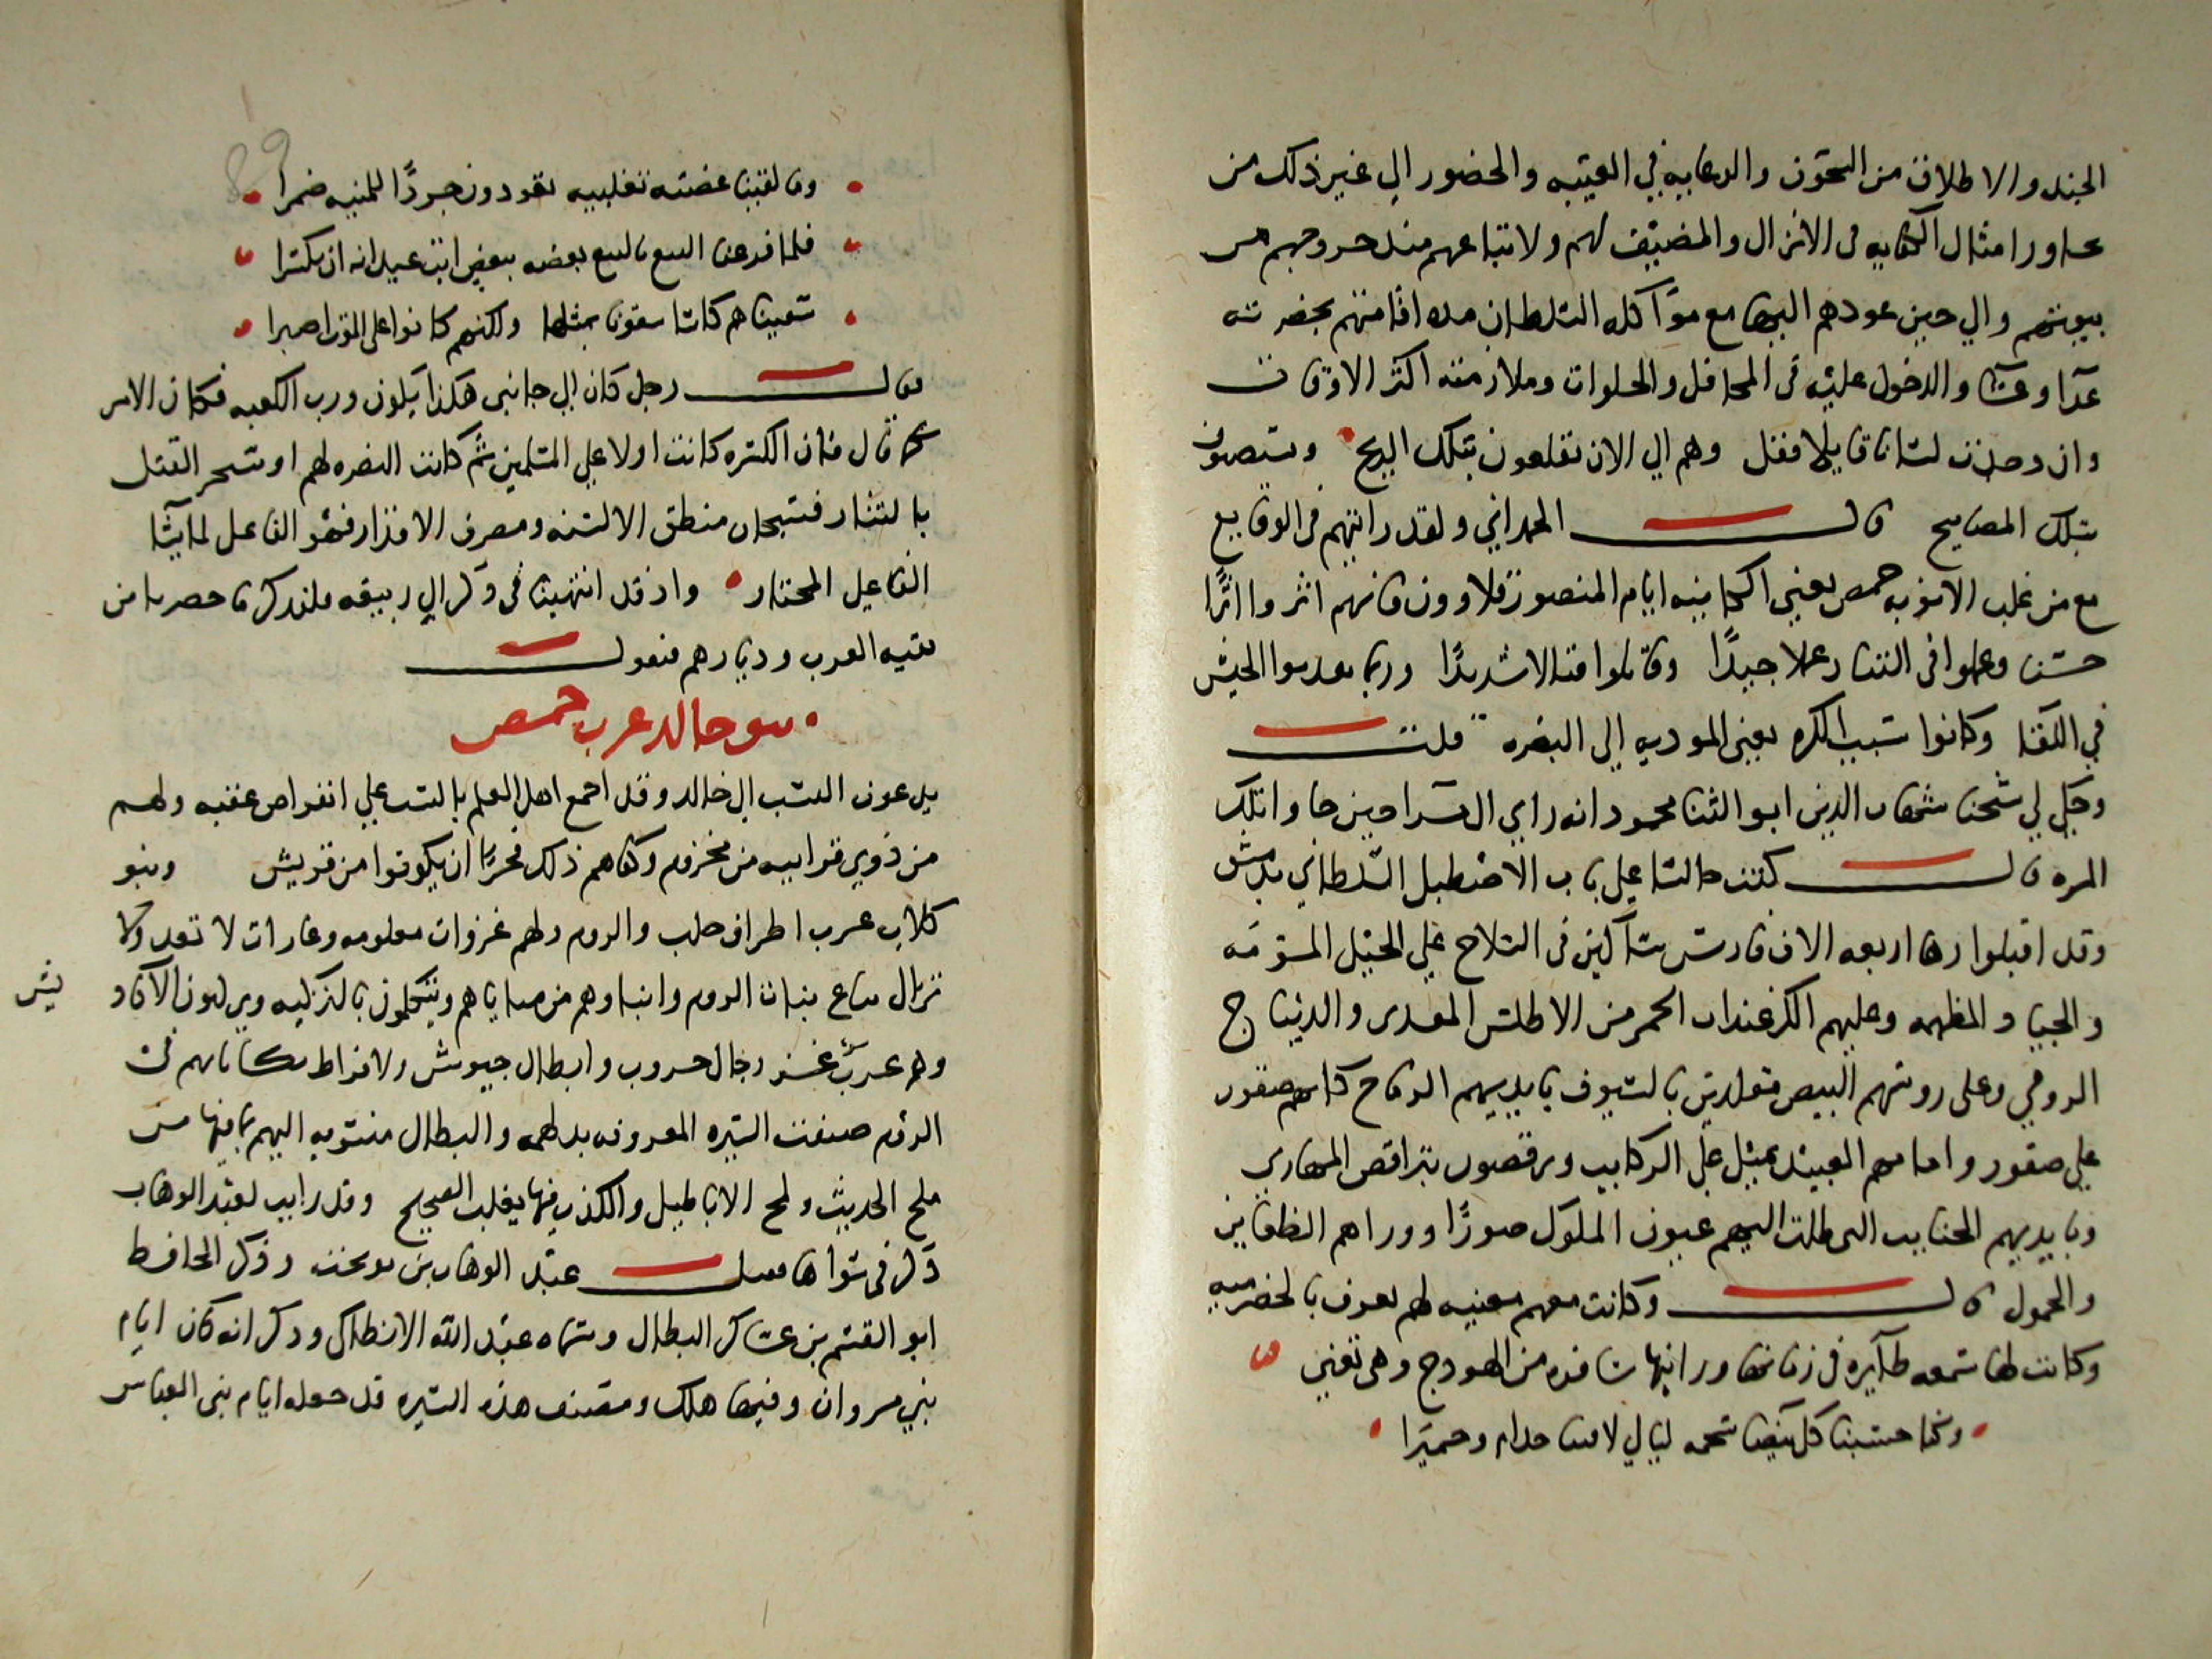 الجند والاطلاق من البحوث والرعاية في الغيبه والحضور الي غير ذلك من
امثال الكفايه في الانزال والمضيف لهم ولاتباعهم منذ خروجهم من
بيوتهم والي حين عودهم اليها مع مؤآكله السلطان مده اقامتهم بحضرته
غدآ وعشآ والدخول عليه في المحافل والخلوات وملازمته اكثر الاوقات
وان وجدت لسانا قايلا فقل وهم الي الان تقلعون بتلك الريح ويستصبحون
بتلك المصابيح قال الحمداني ولقد رايتهم في الوقايع
مع من غلب حمص يعني الكاينه ايام المنصور قلاوون فانهم اثروا اثرًا
حسنا وعملوا في التتار عملا جيدًا وقاتلوا قتالا شديدًا وربما الجيش
في اللقا وكانوا سبب الكره يعني الموديه الي النصره قلت
وحكي لي شيخنا شهاب الدين ابو الثنا محمود انه راي ال مرا حين جاوا تلك
المره قال كنت جالسا علي باب الاصطبل السلطاني بدمشق
وقد اقبلوا زها اربعه الاف فارس شآكين في السلاح علي الخيل المسومه
والجياد المطهمه وعليهم الكزغندات الحمر من الاطلس المعدني والديباج
الرومي وعلى روسهم البيض مقلدين بالسيوف بايديهم الرماح كانهم صقور
علي صقور وامامهم العبيد تميل علي الركايب ويرقصون بتراقص المهاري
وبايديهم الجنايب التي طلت اليهم عيون الملوك صورًا وورآهم الظعاين
والحمول قال وكانت معهم مغنيه لهم تعرف بالحضرميه
وكانت لها سمعه طآيره في زمانها ورايتها سافره من الهودج وهي تغني
وكنا حسبنا كل بيضا شحمه ليالي لاقينا جذام وحميرا
ولما لقينا عصبة تغلبيه يقودون جردًا للمنيه ضمرا
فلما قرعنا النبع بالنبع بعضه ببعض ابت عيدانه ان تكسرا
سقيناهم كاسا سقونا بمثلها ولكنهم كانوا على الموت اصبرا
فقال رجل كان الي جانبي هكذا يكون ورب الكعبه فكان الامر
كما قال فان الكسره كانت اولا علي المسلمين ثم كانت النصره لهم واستحر القتل
بالتتار فسبحان منطق الالسنه ومصرف الاقدار فهو الفاعل لما يشا
الفاعل المختار واذ قد انتهينا في ذكر ال ربيعه فلنذكر ما حضرنا من
بقيه العرب وديارهم فنقول
بنو خالد عرب حمص
يدعون النسب الي خالد وقد اجمع اهل العلم بالنسب علي انقراض عقبه ولعلهم
من ذوي قرابيه من مخزوم وكفاهم ذلك فخرًا ان يكونوا من قريش وبنو
كلاب عرب اطراف حلب والروم ولهم غزوات معلومه وغارات لا تعد ولا
تزال تباع بنات الروم وابناوهم من سباياهم ويتكلمون بالتركيه ويركبون الآكاد
يش
وهم عرب غز رجال حروب وابطال جيوش ولافراط نكاياتهم في
الروم صنفت السيره المعروفه بدلهمه والبطال منسوبه اليهم بما فيها من
ملح الحديث ولمح الاباطيل والكذب فيها يغلب الصحيح وقد رايت لعبد الوهاب
ذكر في سواها عبد الوهاب بن بوبخت وذكر الحافظ
ابو القسم بن عساكر البطال وسماه عبد الله الانطاكي وذكر انه كان ايام
بني مروان وفيها هلك ومصنف هذه السيره قد جعله ايام بني العباس
89